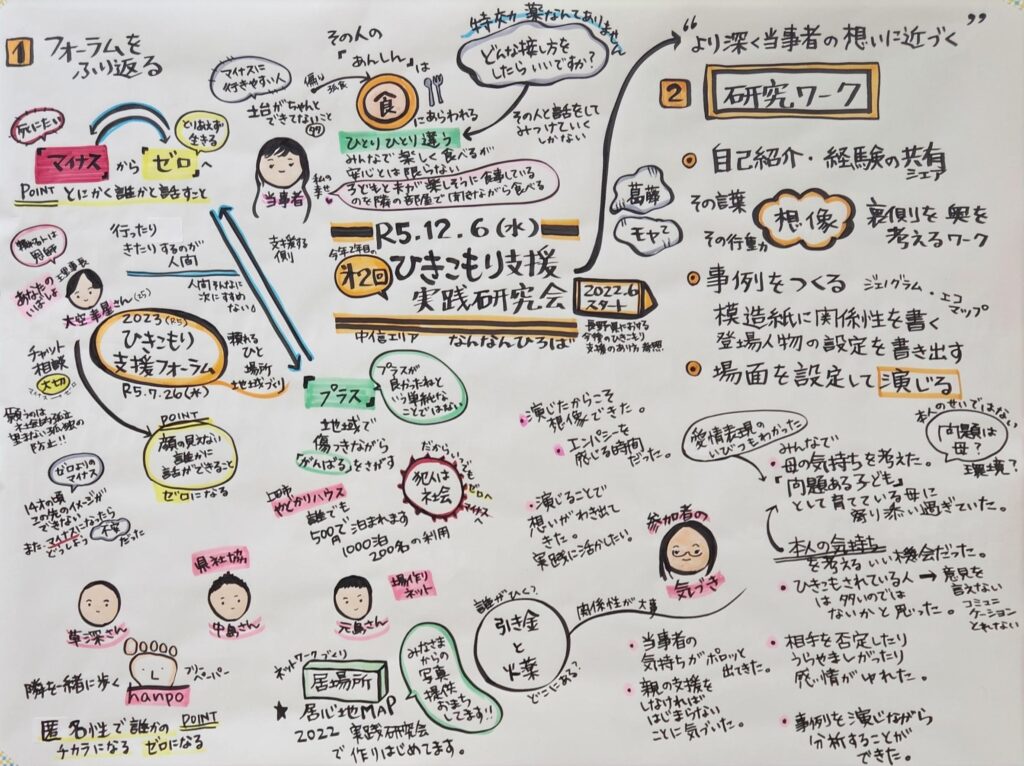 1 フォーラムを
ふり返る
死にたい
とりあえず
生きる
『マイナス』から『ゼロ』へ
POINT とにかく誰かと話すこと
行ったり
きたりするのが
人間
人間そんなに
次にすすめ
ない。
その人の
『あんしん』は
食
にあらわれる
マイナスに
行きやすい人
土台がちゃんと
できてないこと
当事者
ひとりひとり違う
みんなで楽しく食べるが
安心とは限らない
私の
幸せ
子どもと夫が楽しそうに食事している
のを隣の部屋で聞きながら食べる
支援する
側
特効薬なんてありません
どんな接し方を
したらいいですか?
その人と話をして
みつけていく
しかない
R5.12.6(水)
今年2年目の
第2回
ひきこもり支援
実践研究会
2022.6
スタート
中信エリア
なんなんひろば
長野県における
今後のひきこもり
支援のあり方
理事長
あなたの
いばしょ
大空幸星さん(25)
2023(R5)
ひきこもり
支援フォーラム
R5.7.26(水)
頼れる
ひと
場所
地域づくり
チャット
相談
大切
願うのは
望まない孤独の
防止!!
POINT
顔の見えない
誰かに
話ができること
ゼロになる
ゼロよりの
マイナス
14才の頃
この先のイメージが
できない
また マイナスになったら
どうしよう 不安 だった
『プラス』
プラスが
良かったねと
いう単純な
ことではない
地域で
傷つきながら
『がんばる』をさがす
上田市
やどかりハウス
誰でも
500円で泊まれます
1000泊
200名の利用
だからいつでも
犯人は
社会
ゼロへ
マイナスへ
県社協
場作り
ネット
草深さん
中島さん
元島さん
隣を一緒に歩く
hanpo
フリー
ペーパー
匿名性で誰かの POINT
チカラになる ゼロになる
ネットワークづくり
居場所
★ 居心地MAP
2022 実践研究会
で作りはじめてます。
みなさま
からの
写真
提供
おまち
してます!!
誰がひく?
引き金
と
火薬
どこにある?
関係性が大事
“より深く当事者の想いに近づく”
2 研究ワーク
自己紹介・経験の共有
シェア
葛藤
モヤモヤ
その言葉
その行動
想像
裏側を奥を
考えるワーク
事例をつくる
ジェノグラム・エコ
マップ
模造紙に関係性を書く
登場人物の設定を書き出す
場面を設定して演じる
演じたからこそ
想像できた。
エンパシーを
感じる時間
だった。
演じることで
想いがわき出て
きた。
実践に活かしたい。
参加者の
気づき
愛情表現の
いびつもわかった
本人のせいではない
「問題は
母?
環境?
みんなで
母の気持ちを考えた。
『問題ある子ども』
として育てている母に
寄り添い過ぎていた。
本人の気持ち
を考えるいい機会だった。
ひきこもされている人
は多いのでは
ないかと思った。
意見を
言えない
コミュニ
ケーション
とれない
当事者の
気持ちがポロッと
出てきた。
親の支援を
しなければ
はじまらない
ことに気づいた。
相手を否定したり
うらやましがったり
感情がゆれた。
事例を演じながら
分析することが
できた。